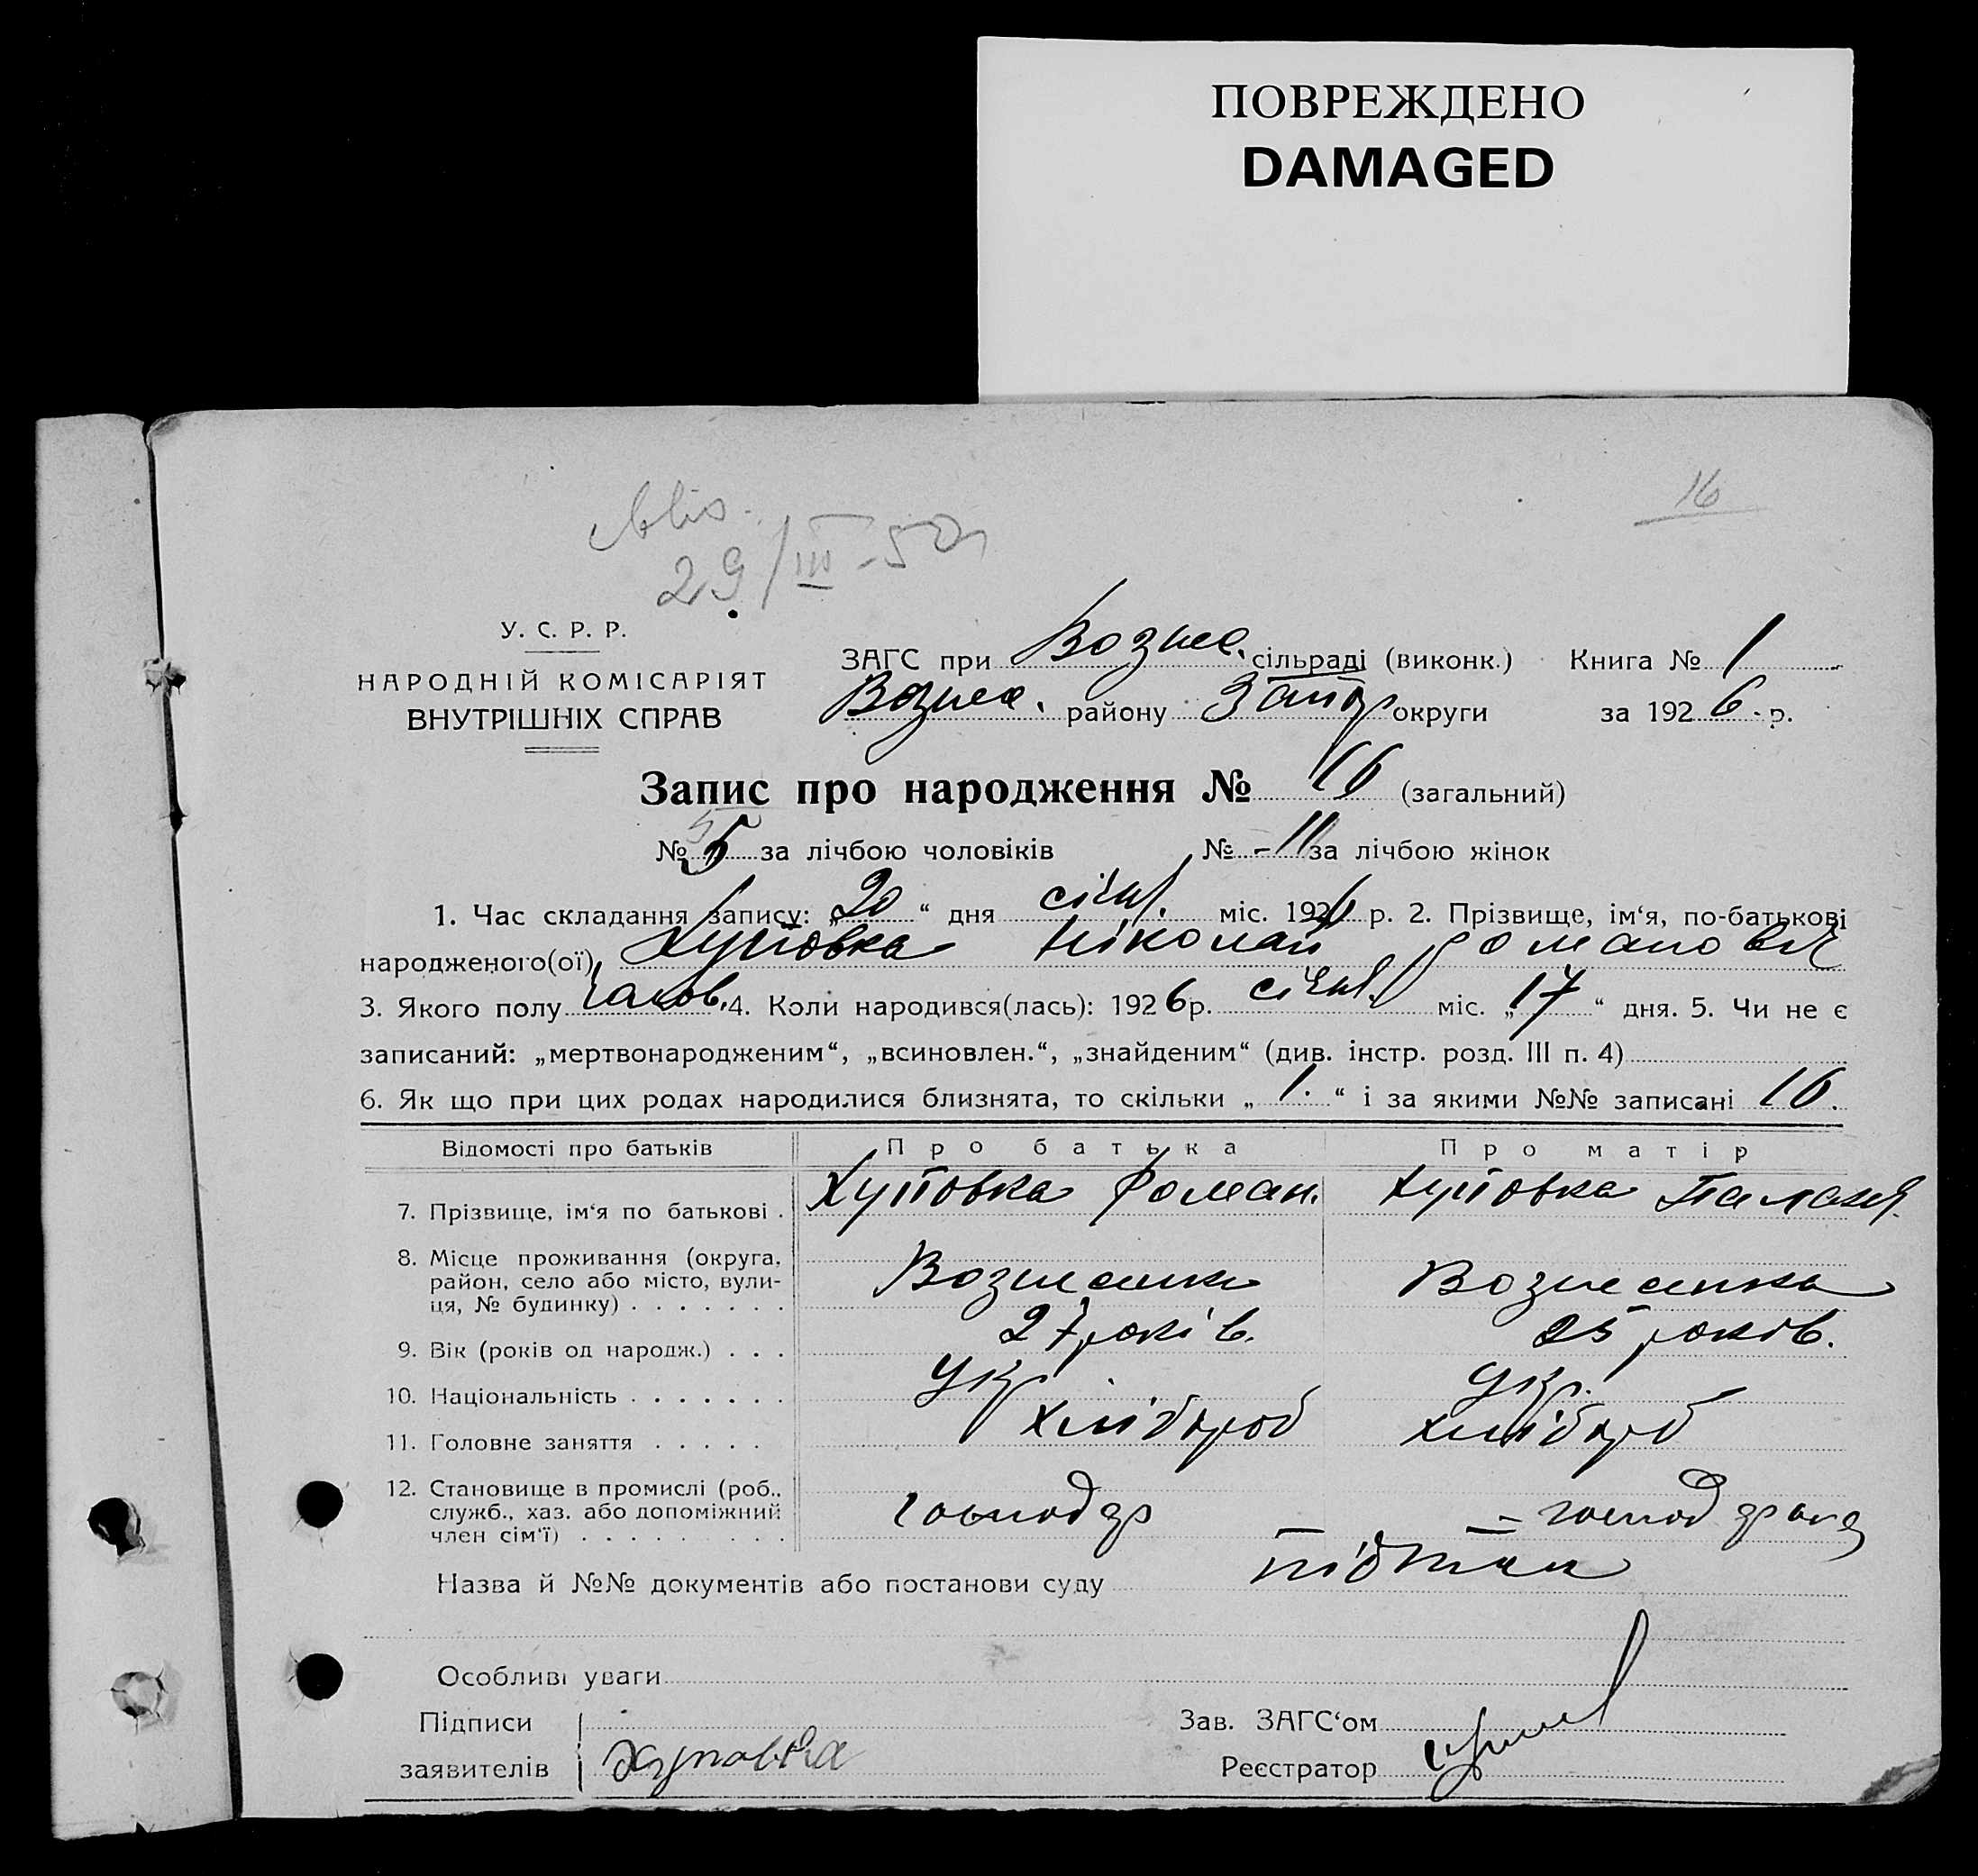 ПОВРЕЖДЕНО
DAMAGED
16
29/III-50
У. С. Р. Р.
НАРОДНІЙ КОМІСАРІЯТ
ВНУТРІШНІХ СПРАВ
ЗАГС при Вознес. сільраді (виконк.) Книга № 1
Вознес. району Запор округи за 1926 р.
Запис про народження № 16 (загальний)
№ 5 за лічбою чоловіків № - 11 за лічбою жінок
1. Час складання запису: „20“ дня січня міс. 1926 р. 2. Прізвище, ім‘я, по-батькові
народженого(ої) Хуповка Ніколай Романович
3. Якого полу чолов. 4. Коли народився(лась): 1926 р. січня міс. „17“ дня. 5. Чи не є
записаний: „мертвонародженим“, „всиновлен.“, „знайденим“ (див. інстр. розд. III п. 4)
6. Як що при цих родах народилися близнята, то скільки „1.“ і за якими №№ записані 16.
Відомості про батьків Про батька Про матір
7. Прізвище, ім‘я по батькові . Хуповка Роман. Хуповка Палажя.
8. Місце проживання (округа, район, село або місто, вулиця, № будинку) . . . . . . . Вознесенка Вознесенка
9. Вік (років од народж.) . . . 27 років. 25 років.
10. Національність . . . . . . . Укр Укр.
11. Головне заняття . . . . . Хлібороб Хлібороб
12. Становище в промислі (роб., служб., хаз. або допоміжний член сім‘ї) . . . . . . . . . господар - господарка
Назва й №№ документів або постанови суду
Особливі уваги
Підписи
заявителів Хуповка
Зав. ЗАГС‘ом
Реєстратор